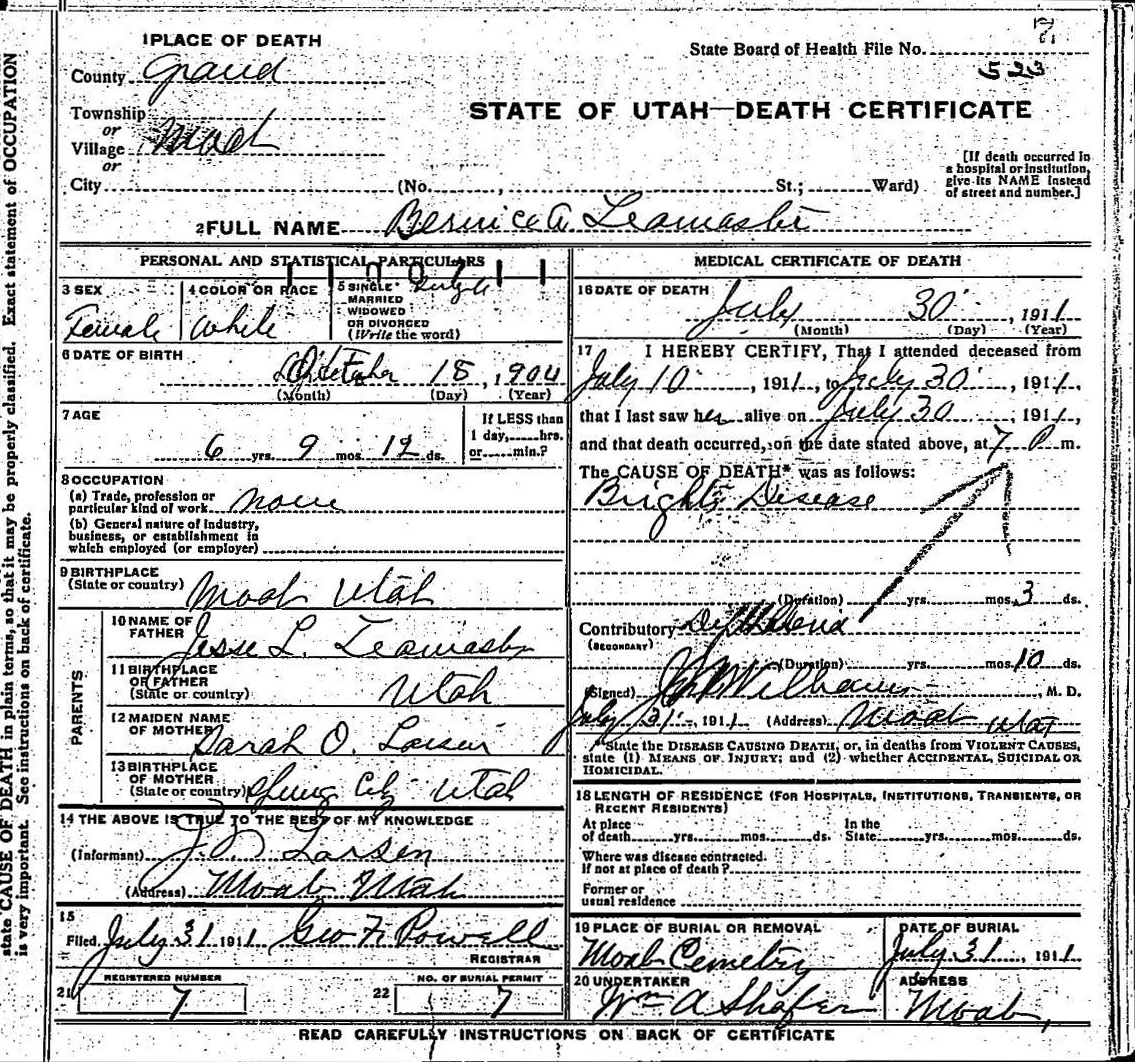 7
State Board of Health File No.
523
STATE OF UTAH—DEATH CERTIFICATE
1 PLACE OF DEATH
County Grand
Township
or
Village Moab
or
City (No. , St.; Ward)
[If death occurred in
a hospital or institution,
give its NAME instead
of street and number.]
2 FULL NAME Bernice A. Leamaster
PERSONAL AND STATISTICAL PARTICULARS
3 SEX
Female
4 COLOR OR RACE
White
5 SINGLE
MARRIED
WIDOWED
OR DIVORCED
(Write the word)
Single
6 DATE OF BIRTH
October 18, 1904
(Month) (Day) (Year)
7 AGE
6 yrs. 9 mos. 12 ds.
If LESS than
1 day, hrs.
or min.?
8 OCCUPATION
(a) Trade, profession or
particular kind of work None
(b) General nature of industry,
business, or establishment in
which employed (or employer)
9 BIRTHPLACE
(State or country) Moab Utah
PARENTS
10 NAME OF
FATHER Jesse L. Leamaster
11 BIRTHPLACE
OF FATHER
(State or country) Utah
12 MAIDEN NAME
OF MOTHER Sarah O. Larsen
13 BIRTHPLACE
OF MOTHER
(State or country) Spring City Utah
14 THE ABOVE IS TRUE TO THE BEST OF MY KNOWLEDGE
(Informant) Larsen
(Address) Moab Utah
15
Filed July 31 1911 Geo F. Powell
REGISTRAR
REGISTERED NUMBER
21 7
NO. OF BURIAL PERMIT
22 7
MEDICAL CERTIFICATE OF DEATH
16 DATE OF DEATH
July 30, 1911
(Month) (Day) (Year)
17 I HEREBY CERTIFY, That I attended deceased from
July 10, 1911, to July 30, 1911,
that I last saw her alive on July 30, 1911,
and that death occurred, on the date stated above, at 7 P m.
The CAUSE OF DEATH* was as follows:
Brights Disease
(Duration) yrs. mos. 3 ds.
Contributory
(SECONDARY)
(Duration) yrs. mos. 10 ds.
(Signed) Williams M. D.
July 31, 1911 (Address) Moab Utah
*State the DISEASE CAUSING DEATH, or, in deaths from VIOLENT CAUSES,
state (1) MEANS OF INJURY; and (2) whether ACCIDENTAL, SUICIDAL OR
HOMICIDAL.
18 LENGTH OF RESIDENCE (FOR HOSPITALS, INSTITUTIONS, TRANSIENTS, OR
RECENT RESIDENTS)
At place In the
of death yrs. mos. ds. State yrs. mos. ds.
Where was disease contracted.
if not at place of death?
Former or
usual residence
19 PLACE OF BURIAL OR REMOVAL
Moab Cemetery
DATE OF BURIAL
July 31, 1911
20 UNDERTAKER
Wm A Shafer
ADDRESS
Moab,
READ CAREFULLY INSTRUCTIONS ON BACK OF CERTIFICATE
state CAUSE OF DEATH in plain terms, so that it may be properly classified. Exact statement of OCCUPATION
is very important. See instructions on back of certificate.